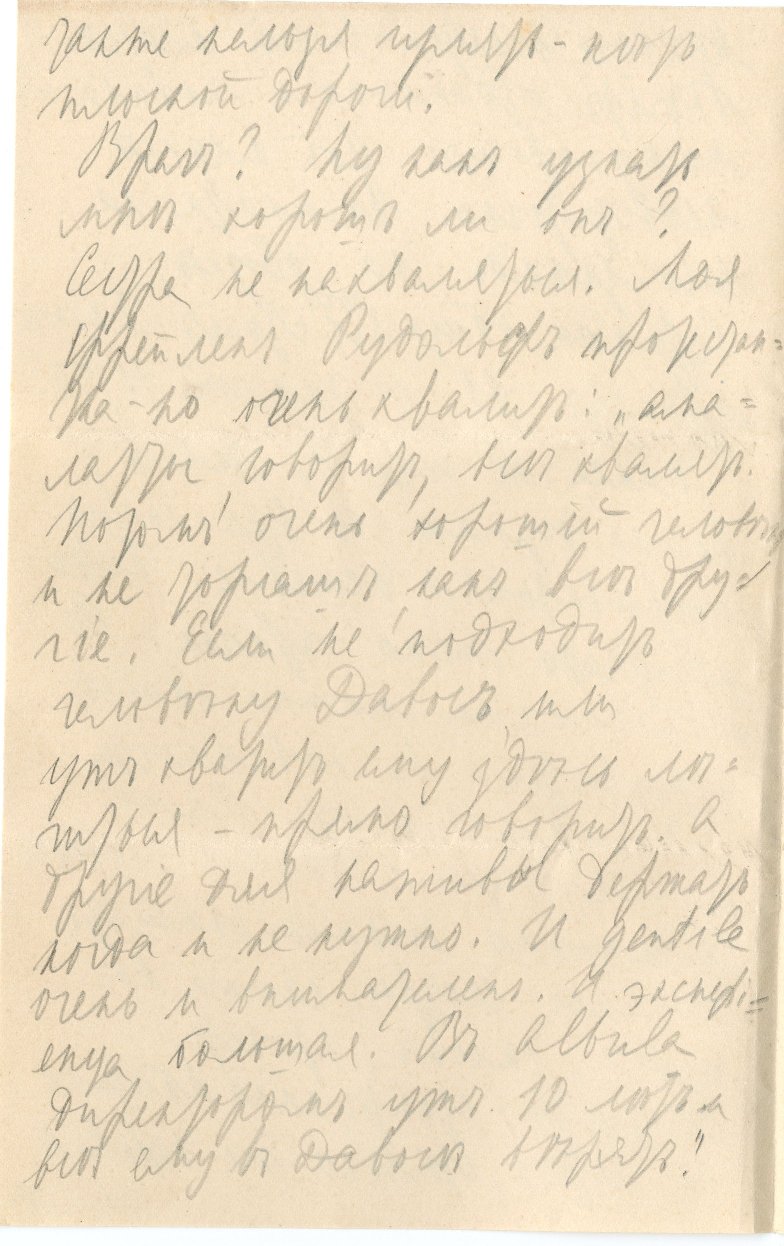 также нельзя принять - нѣтъ
плоской дороги.
Врачъ? Ну какъ узнать
мнѣ хорошъ ли онъ?
Сестра не нахвалится. Моя
фрейленъ Рудольфъ протестан=
тка - но очень хвалитъ: „она=
говоритъ, всѣ хвалятъ.
Потомъ очень хорошій человѣкъ
и не торгашъ, какъ всѣ дру=
гіе. Если не подходитъ
человѣку Давосъ или
ужъ хватитъ ему здѣсь лѣ=
читься - прямо говоритъ. А
другіе для наживы держатъ
когда и не нужно. И gentile
очень и внимателенъ. А экспері=
енца большая. Въ Albula
директоромъ ужъ 10 лѣтъ и
всѣ ему въ Давосѣ вѣрятъ!"